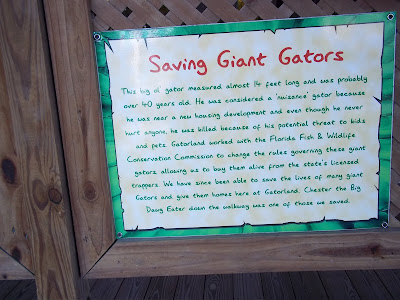 Saving Giant Gators
This big ol' gator measured almost 14 feet long and was probably
over 40 years old. He was considered a 'nuisance' gator because
he was near a new housing development and even though he never
hurt anyone, he was killed because of his potential threat to kids
and pets. Gatorland worked with the Florida Fish & Wildlife
Conservation Commission to change the rules governing these giant
gators allowing us to buy them alive from the state's licensed
trappers. We have since been able to save the lives of many giant
Gators and give them homes here at Gatorland. Chester the Big
Dawg Eater down the walkway was one of those we saved.